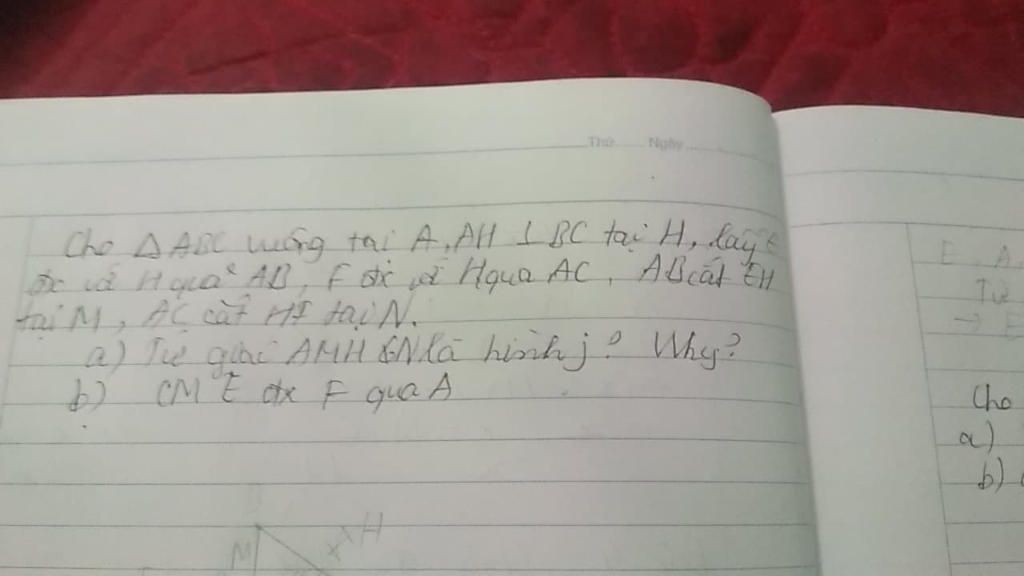 Thứ Ngày
Cho Δ ABC vuông tại A, AH ⊥ BC tại H, lấy E
đx với H qua AB, F đx với H qua AC, AB cắt EH
tại M, AC cắt HF tại N.
a) Tứ giác AMHN là hình j? Why?
b) CM E đx F qua A
E A
Tứ
→ E
Cho
a)
b)
M H